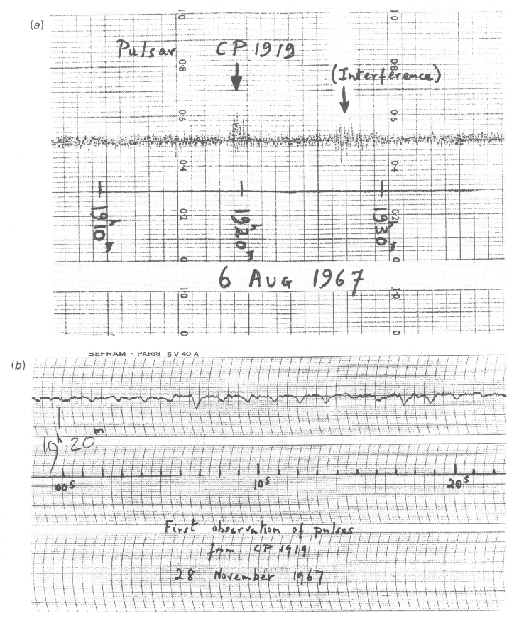 (a)
Pulsar CP 1919
(Interference)
19h10m
19h20m
19h30m
6 AUG 1967
(b)
SEFRAM - PARIS
19h 20m
00s 10s 20s
First observation of pulses
from CP 1919
28 November 1967